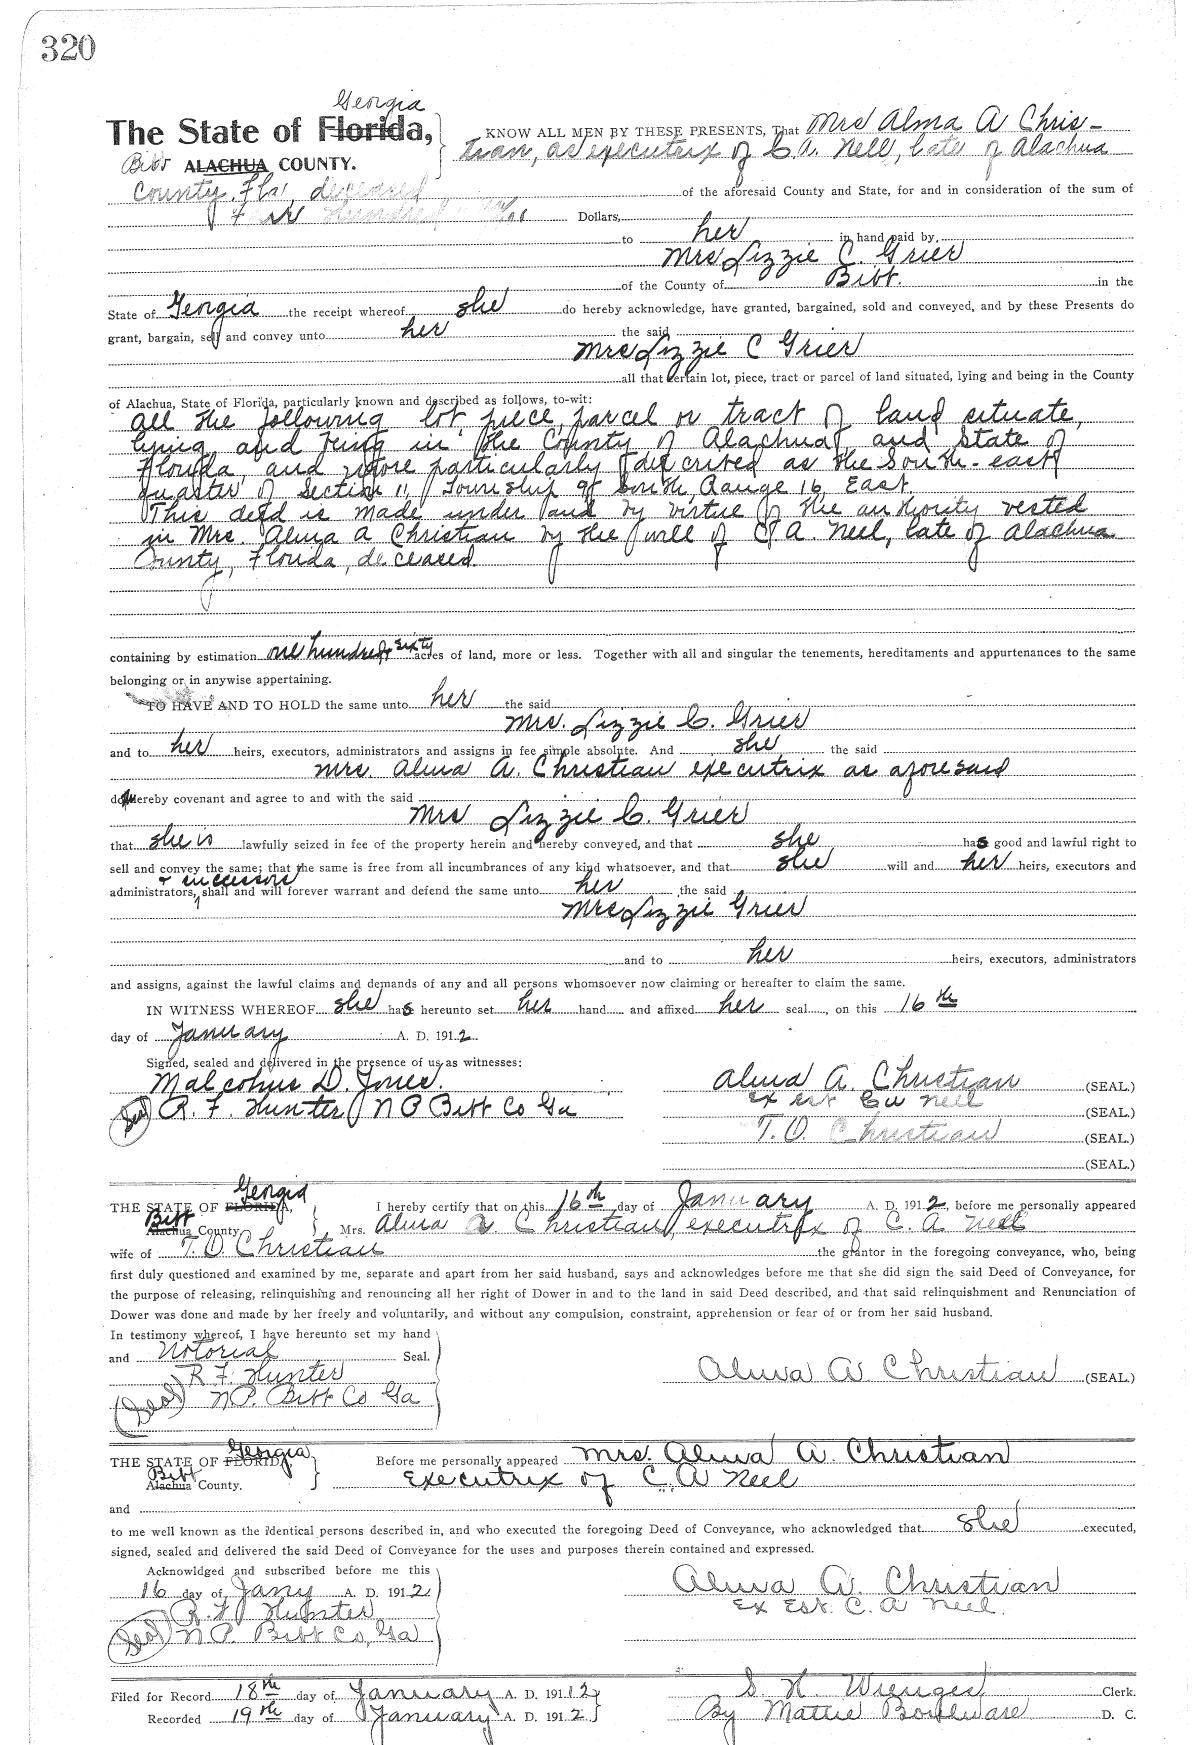 320
Georgia
The State of Florida, KNOW ALL MEN BY THESE PRESENTS, That Mrs Alma A Chris-
Bibb ALACHUA COUNTY. tian, as executrix of C. A. Neel, late of Alachua
County, Fla, deceased of the aforesaid County and State, for and in consideration of the sum of
Hundred Dollars,
to her in hand paid by
Mrs Lizzie C. Grier
of the County of Bibb. in the
State of Georgia the receipt whereof she do hereby acknowledge, have granted, bargained, sold and conveyed, and by these Presents do
grant, bargain, sell and convey unto her the said
Mrs Lizzie C Grier
all that certain lot, piece, tract or parcel of land situated, lying and being in the County
of Alachua, State of Florida, particularly known and described as follows, to-wit:
all the following lot piece, parcel or tract of land situate,
lying and being in the County of Alachua and State of
Florida, and more particularly described as the South-east
quarter of Section 11, Township 9 South, Range 16, East
This deed is made under and by virtue of the authority vested
in Mrs. Alma A Christian by the will of C. A. Neel, late of Alachua
County, Florida, deceased.
containing by estimation one hundred sixty acres of land, more or less. Together with all and singular the tenements, hereditaments and appurtenances to the same
belonging or in anywise appertaining.
TO HAVE AND TO HOLD the same unto her the said
Mrs. Lizzie C. Grier
and to her heirs, executors, administrators and assigns in fee simple absolute. And she the said
Mrs. Alma A. Christian executrix as aforesaid
do hereby covenant and agree to and with the said
Mrs Lizzie C. Grier
that she is lawfully seized in fee of the property herein and hereby conveyed, and that she has good and lawful right to
sell and convey the same; that the same is free from all incumbrances of any kind whatsoever, and that she will and her heirs, executors and
& successors
administrators, shall and will forever warrant and defend the same unto her the said
Mrs Lizzie Grier
and to her heirs, executors, administrators
and assigns, against the lawful claims and demands of any and all persons whomsoever now claiming or hereafter to claim the same.
IN WITNESS WHEREOF she has hereunto set her hand and affixed her seal, on this 16th
day of January A. D. 1912.
Signed, sealed and delivered in the presence of us as witnesses:
Malcolm D. Jones. Alma A. Christian (SEAL.)
(Seal) R. F. Hunter N P Bibb Co Ga Ex Est C W Neel (SEAL.)
T. O. Christian (SEAL.)
(SEAL.)
Georgia
THE STATE OF FLORIDA, I hereby certify that on this 16th day of January A. D. 1912, before me personally appeared
Bibb
Alachua County Mrs. Alma A Christian, executrix of C. A Neel
wife of T. O. Christian the grantor in the foregoing conveyance, who, being
first duly questioned and examined by me, separate and apart from her said husband, says and acknowledges before me that she did sign the said Deed of Conveyance, for
the purpose of releasing, relinquishing and renouncing all her right of Dower in and to the land in said Deed described, and that said relinquishment and Renunciation of
Dower was done and made by her freely and voluntarily, and without any compulsion, constraint, apprehension or fear of or from her said husband.
In testimony whereof, I have hereunto set my hand
and Notorial Seal.
R. F. Hunter Alma A. Christian (SEAL.)
(Seal) N.P. Bibb Co Ga
Georgia
THE STATE OF FLORIDA Before me personally appeared Mrs. Alma A. Christian
Bibb
Alachua County. Executrix of C. A Neel
and
to me well known as the identical persons described in, and who executed the foregoing Deed of Conveyance, who acknowledged that she executed,
signed, sealed and delivered the said Deed of Conveyance for the uses and purposes therein contained and expressed.
Acknowldged and subscribed before me this
16 day of Jany A. D. 1912 Alma A. Christian
R. F Hunter Ex Est. C. A Neel.
(Seal) N P. Bibb Co, Ga
Filed for Record 18th day of January A. D. 1912 S. H. Wienges Clerk.
Recorded 19th day of January A. D. 1912 By Mattie Boulware D. C.